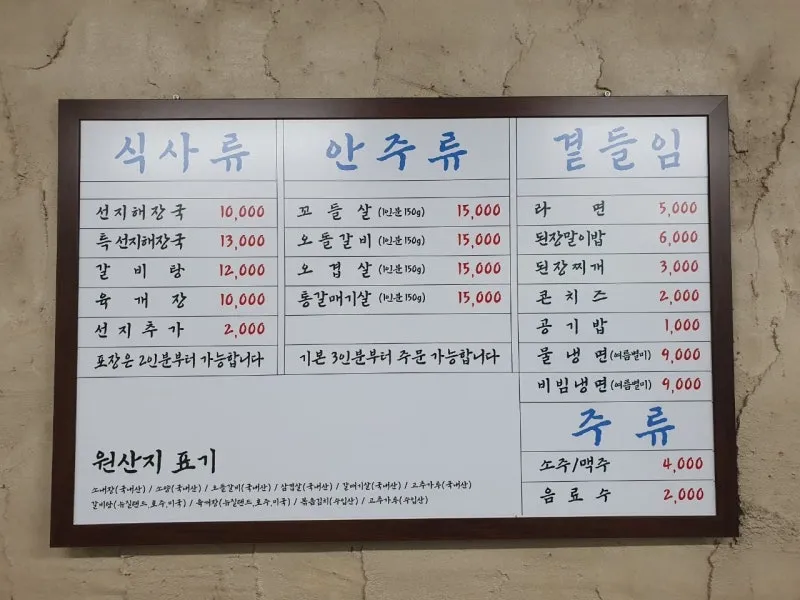 식사류
선지해장국 10,000
특선지해장국 13,000
갈비탕 12,000
육개장 10,000
선지추가 2,000
포장은 2인분부터 가능합니다
안주류
꼬들살 (1인분 150g) 15,000
오돌갈비 (1인분 150g) 15,000
오겹살 (1인분 150g) 15,000
통갈매기살 (1인분 150g) 15,000
기본 3인분부터 주문 가능합니다
곁들임
라면 5,000
된장말이밥 6,000
된장찌개 3,000
콘치즈 2,000
공기밥 1,000
물냉면 (여름별미) 9,000
비빔냉면 (여름별미) 9,000
주류
소주/맥주 4,000
음료수 2,000
원산지 표기
소내장(국내산) / 소양(국내산) / 오돌갈비(국내산) / 삼겹살(국내산) / 갈매기살(국내산) / 고추가루(국내산)
갈비탕(뉴질랜드,호주,미국) / 육개장(뉴질랜드,호주,미국) / 볶음김치(수입산) / 고추가루(수입산)